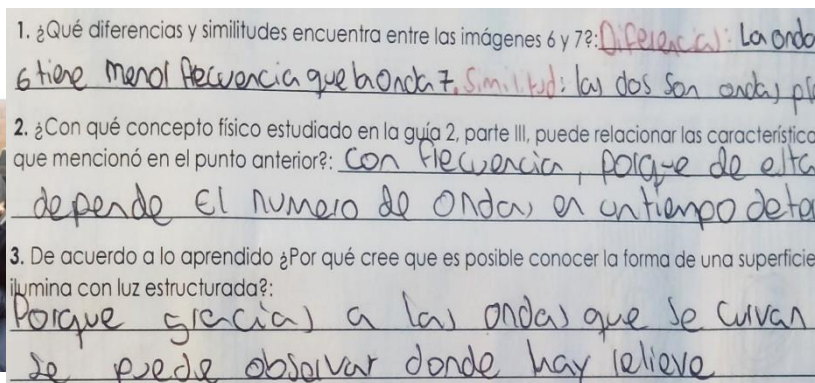 1. ¿Qué diferencias y similitudes encuentra entre las imágenes 6 y 7?: Diferencia: La onda
6 tiene menor frecuencia que la onda 7. Similitud: las dos son ondas pl
2. ¿Con qué concepto físico estudiado en la guía 2, parte III, puede relacionar las característica
que mencionó en el punto anterior?: Con frecuencia, porque de esta
depende El numero de Ondas en un tiempo dete
3. De acuerdo a lo aprendido ¿Por qué cree que es posible conocer la forma de una superficie
ilumina con luz estructurada?:
Porque gracias a las ondas que se curvan
se puede observar donde hay relieve